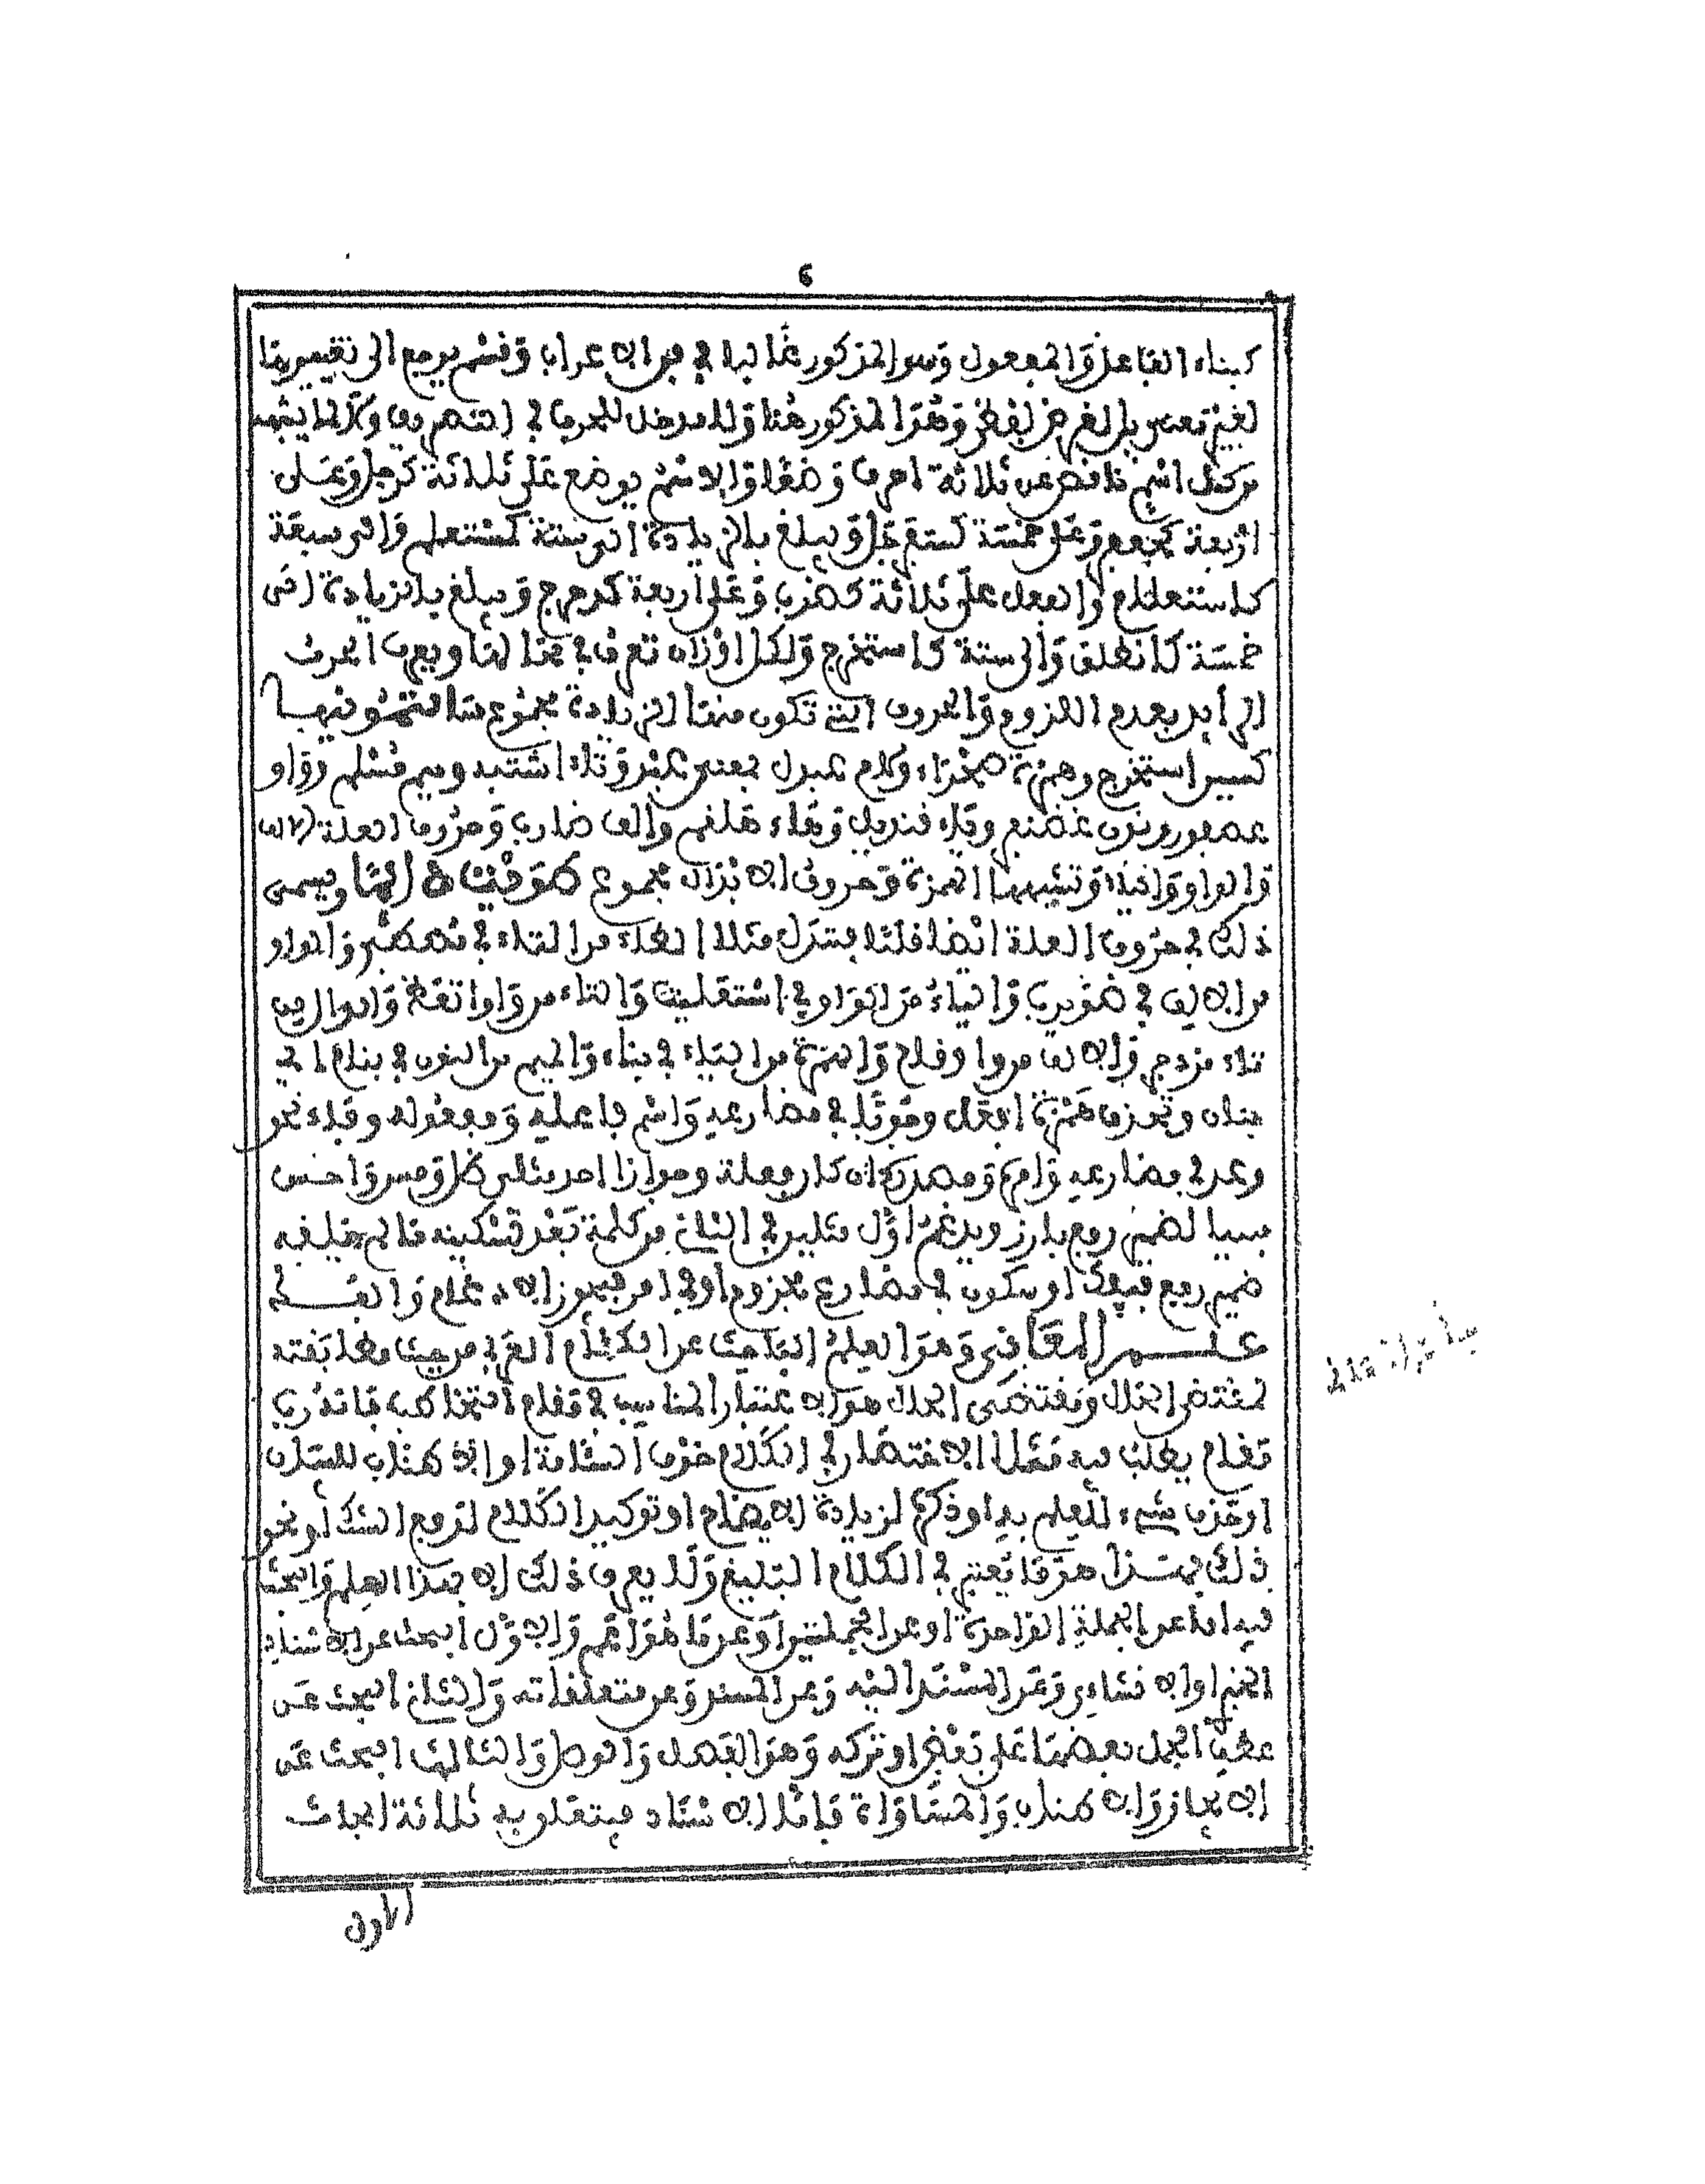 6
كبناء الفاعل والمفعول وهو المذكور غالبا في فن الاعراب وقسم يرجع الى تغييرها
لغير تغيير بل لغرض لفظي وهذا المذكور هنا ولا مدخل للحرف في التصريف وكذا ما يشبهه
من كل اسم ناقص عن ثلاثة احرف وضعا والاسم يوضع على ثلاثة كرجل وعلى
اربعة كجعفر وعلى خمسة كسفرجل ويبلغ بالزيادة الى ستة كمستعلم والى سبعة
كاستعلام والفعل على ثلاثة كضرب وعلى اربعة كدحرج ويبلغ بالزيادة الى
خمسة كانطلق والى ستة كاستخرج ولكل اوزان تعرف في محالها ويعرف الحرف
الزايد بعدم اللزوم والحروف التي تكون منها الزيادة مجموع سالتمونيها
كسين استخرج وهمزة صحراء ولام عبدل بمعنى عبد وتاء اشتبه وميم مسلم وواو
عصفور ونون غضنفر وياء قنديل وهاء طلقه والف ضارب وحروف العلة الالف
والواو والياء وتشبهها الهمزة وحروف الابدال مجموع طويت دائما ويسمى
ذلك في حروف العلة ايضا قلبا فتبدل مثلا الطاء من التاء في نحو اصطبر والواو
من الالف في ضويرب والياء من الواو في استقليت والتاء من واو اتقد والدال من
تاء مزدجر والالف من واو فلاح والهمزة من الياء في بناء والميم من النون في بنام اي
بنان وتحذف همزة افعل وجوبا في مضارعه واسم فاعله ومفعوله وفاء نحو
وعد في مضارعه وامره ومصدره ان كان بفعلة وجوازا احد مثلي ظل ومس واحس
مبنيا لضمير رفع بارز ويدغم اول مثلين في الثاني من كلمة بعد تسكينه ما لم يتصل به
ضمير رفع فيفك او سكون في مضارع مجزوم او في امر فيجوز الادغام والفك
علم المعاني وهو العلم الباحث عن الكلام العربي من حيث مطابقته
لمقتضى الحال ومقتضى الحال هو الاعتبار المناسب في مقام التخاطب فاذا كان
مقام يطلب فيه مثلا الاختصار في الكلام خوف السآمة او الاطناب للبيان
او حذف شيء للعلم به او ذكره لزيادة الايضاح او توكيد الكلام لدفع الشك او نحو
ذلك ... هو ما يعتبر في الكلام البليغ ولا يعرف ذلك الا بهذا العلم والبحث
فيه اما عن الجملة الواحدة او عن الجملتين او عن ما هو اعم والاول البحث عن الاسناد
الخبري او الانشائي وعن المسند اليه وعن المسند وعن متعلقاته والثاني البحث عن
عطف الجمل بعضها على بعض او تركه وهو الفصل والوصل والثالث البحث عن
الايجاز والاطناب والمساواة فاما الاسناد فيتعلق به ثلاثة ابحاث
الاول